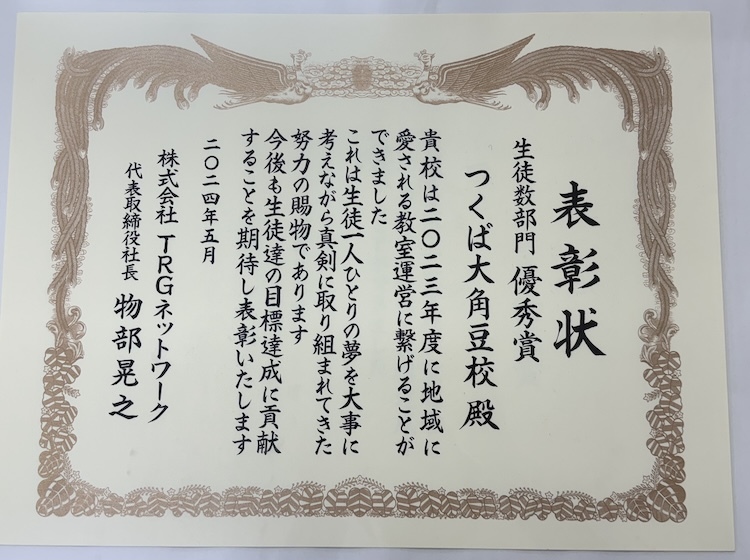 表彰状
生徒数部門 優秀賞
つくば大角豆校 殿
貴校は二〇二三年度に地域に
愛される教室運営に繋げることが
できました
これは生徒一人ひとりの夢を大事に
考えながら真剣に取り組まれてきた
努力の賜物であります
今後も生徒達の目標達成に貢献
することを期待し表彰いたします
二〇二四年五月
株式会社 TRGネットワーク
代表取締役社長 物部晃之